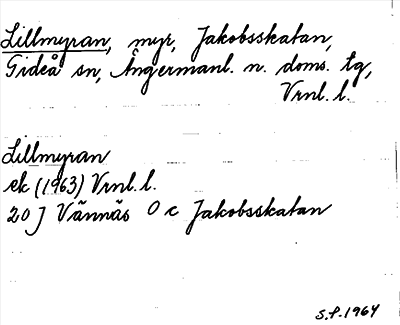 Lillmyran, myr, Jakobsskatan,
Gideå sn, Ångermanl. n. doms. tg,
Vrnl. l.
Lillmyran
ek (1963) Vrnl. l.
20 J Vännäs 0 c Jakobsskatan
S.P. 1964